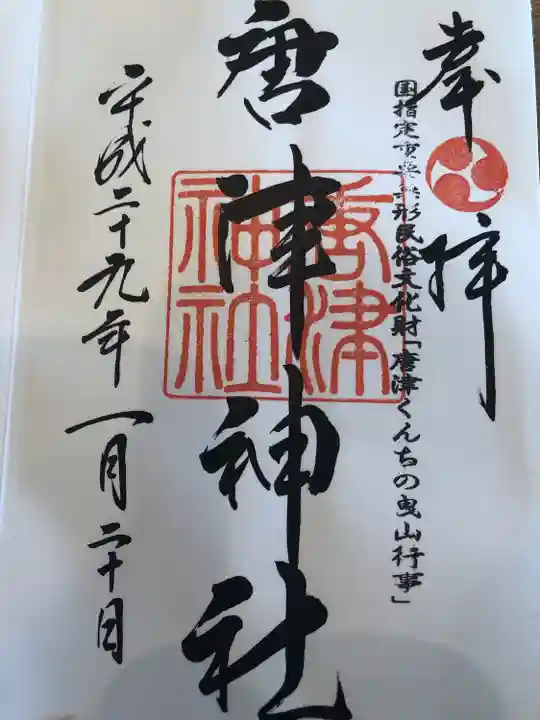 奉拝
国指定重要無形民俗文化財「唐津くんちの曳山行事」
唐津神社
唐津
神社
平成二十九年一月二十日